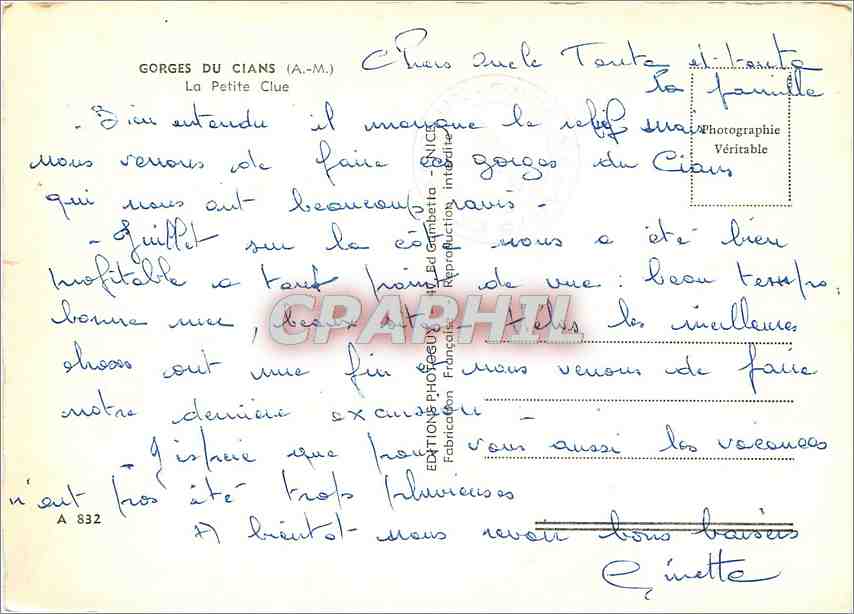 GORGES DU CIANS (A.-M.)
La Petite Clue
Chers Oncle Tante et toute
la famille
- Bien entendu il manque le relief mais
nous venons de faire les gorges du Cians
qui nous ont beaucoup ravis -
- Juillet sur la côte nous a été bien
profitable a tous points de vue : beau temps,
bonne mer, beaux sites - hélas, les meilleures
choses ont une fin et nous venons de faire
notre dernière excursion
- J'espère que pour vous aussi les vacances
n'ont pas été trop pluvieuses
A bientot - nous revoir bons baisers
Ginette
Photographie
Véritable
EDITIONS PHOTOGUY - Bd Gambetta - NICE
Fabrication Française - Reproduction interdite
A 832
CPARPHIL